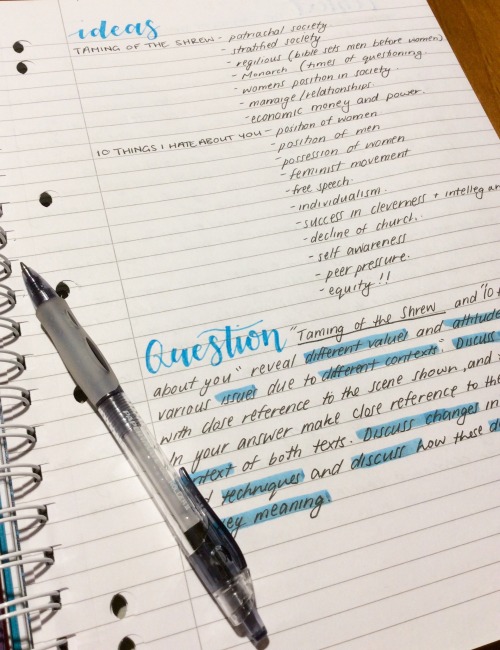 ideas
TAMING OF THE SHREW - patriachal society
- stratified society
- regilious (bible sets men before women)
- Monarch (times of questioning.
- womens position in society.
- marraige/relationships.
- economic money and power.
10 THINGS I HATE ABOUT YOU - position of women
- position of men
- possession of women
- feminist movement
- free speech.
- individualism.
- success in cleverness + intelleg
- decline of church.
- self awareness
- peer pressure.
- equity !!
Question "Taming of the Shrew and "10
about you" reveal different values and attitude
various issues due to different contexts". Discuss
with close reference to the scene shown, and
In your answer make close reference to the
text of both texts. Discuss changes in
techniques and discuss how these
ey meaning.